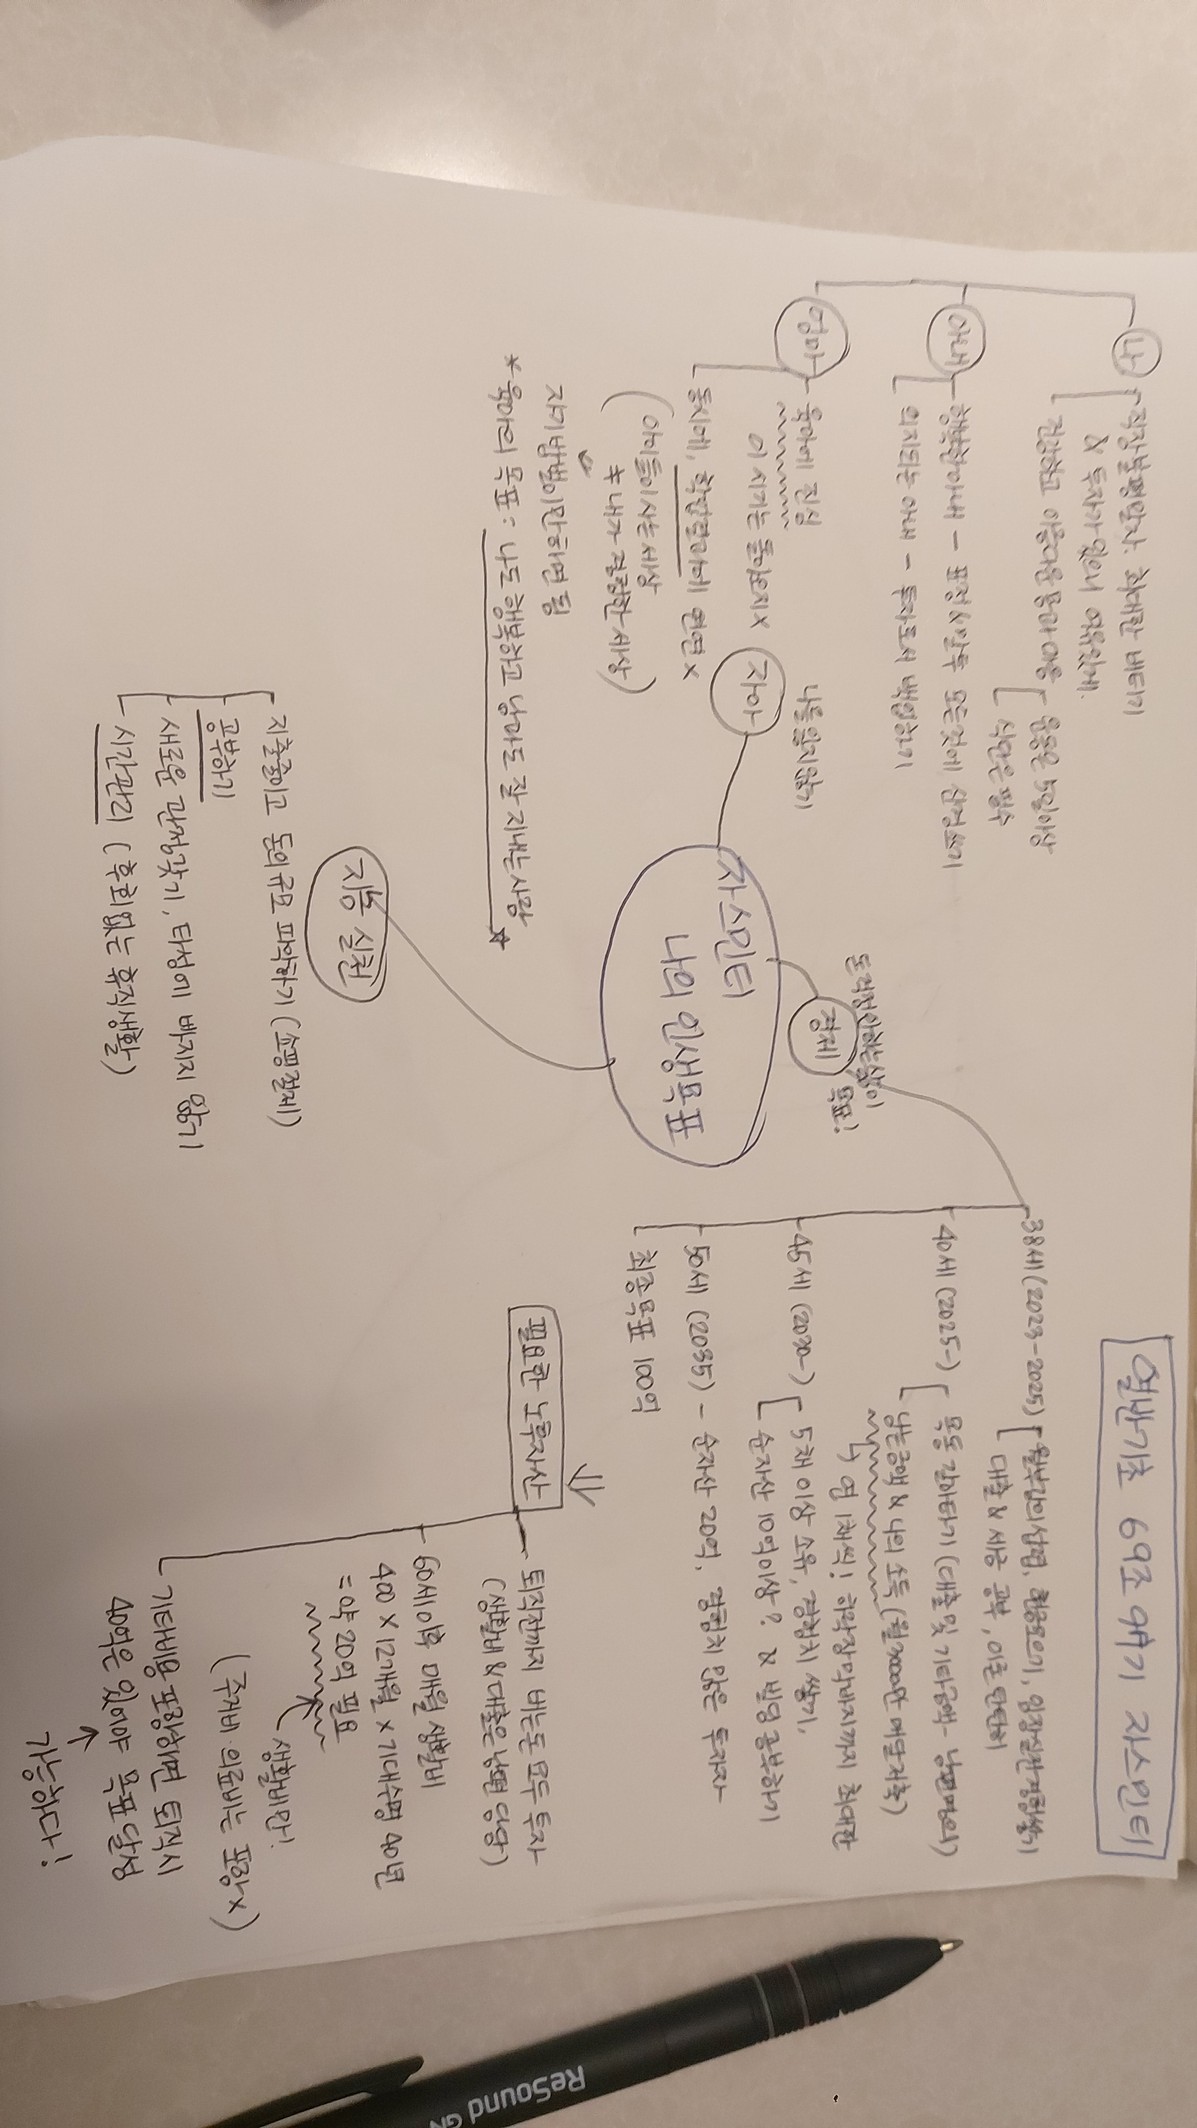 열반기초 69조 97기 자스민티
자스민티
나의 인생목표
자아
나를 잃지않기
나
직장불평말자. 최대한 버티기
& 투자가 있으니 여유있게.
건강하고 아름다운 몸과 마음
운동은 5일이상
식단은 필수
아내
행복한아내 - 표정&말투 모든것에 신경쓰기
의지되는 아내 - 투자로서 백업하기
엄마
육아에 진심
이 시기는 돌아오지X
동시에, 학장결과에 연연X
(아이들이사는세상
≠ 내가 경험한 세상)
자기밥벌이만하면 됨
*육아의 목표: 나도 행복하고 남과도 잘 지내는 사람
경제
돈걱정안하는삶이
목표!
38세 (2023-2025)
대출 & 세금 공부, 이론 탄탄히
40세 (2025-)
목동 갈아타기 (대출 및 기타금액- 남편명의)
남는금액 & 나의 소득 (월 2000만 예탁저축)
연 1채씩! 하락장막바지까지 최대한
45세 (2030-)
5채 이상 소유, 경험치 쌓기,
순자산 10억이상? & 빌딩 공부하기
50세 (2035) - 순자산 20억, 겁먹지 않은 투자자
최종목표 100억
필요한 노후자산
퇴직전까지 버는돈 모두 투자
(생활비 & 대출은 남편 담당)
60세이후 매월 생활비
400 × 12개월 × 기대수명 40년
= 약 20억 필요
생활비만!
(주거비 의료비는 포함X)
기타비용 포함하면 퇴직시
40억은 있어야 목표 달성
가능하다!
지출 실천
지출줄이고 돈의규모 파악하기 (소명하기)
공부하기
새로운 관점갖기, 타성에 빠지지 않기
시간관리 (후회없는 휴직생활)
ReSound GN